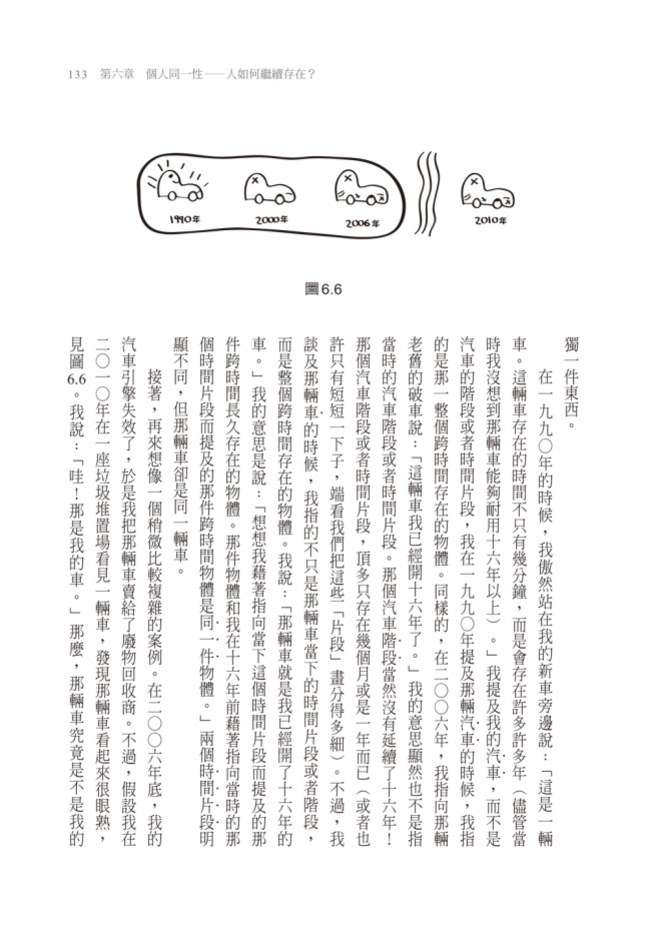 133 第六章 個人同一性——人如何繼續存在？
1990年
2000年
2006年
2010年
圖6.6
獨一件東西。
在一九九〇年的時候，我傲然站在我的新車旁邊說：「這是一輛
車。這輛車存在的時間不只有幾分鐘，而是會存在許多許多年（儘管當
時我沒想到那輛車能夠耐用十六年以上）。」我提及我的汽車，而不是
汽車的階段或者時間片段，我在一九九〇年提及那輛汽車的時候，我指
的是那一整個跨時間存在的物體。同樣的，在二〇〇六年，我指向那輛
老舊的破車說：「這輛車我已經開十六年了。」我的意思顯然也不是指
當時的汽車階段或者時間片段。那個汽車階段當然沒有延續了十六年！
那個汽車階段或者時間片段，頂多只存在幾個月或是一年而已（或者也
許只有短短一下子，端看我們把這些「片段」畫分得多細）。不過，我
談及那輛車的時候，我指的不只是那輛車當下的時間片段或者階段，
而是整個跨時間存在的物體。我說：「那輛車就是我已經開了十六年的
車。」我的意思是說：「想想我藉著指向當下這個時間片段而提及的那
件跨時間長久存在的物體。那件物體和我在十六年前藉著指向當時的那
個時間片段而提及的那件跨時間物體是同一件物體。」兩個時間片段明
顯不同，但那輛車卻是同一輛車。
接著，再來想像一個稍微比較複雜的案例。在二〇〇六年底，我的
汽車引擎失效了，於是我把那輛車賣給了廢物回收商。不過，假設我在
二〇一〇年在一座垃圾堆置場看見一輛車，發現那輛車看起來很眼熟，
見圖6.6。我說：「哇！那是我的車。」那麼，那輛車究竟是不是我的